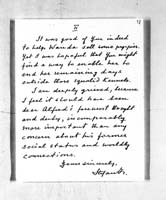 V
It was good of you indeed
to help Wanda sell some puppies.
Yet I was hopeful that you might
find a way to enable her to
end her remaining days
outside those squalid kennels.
I am deeply grieved, because
I feel it should have been
dear Alfred's present
and derby, is incomparably
more important than any
concern about his former
social status and worldly
connections.
Yours sincerely,